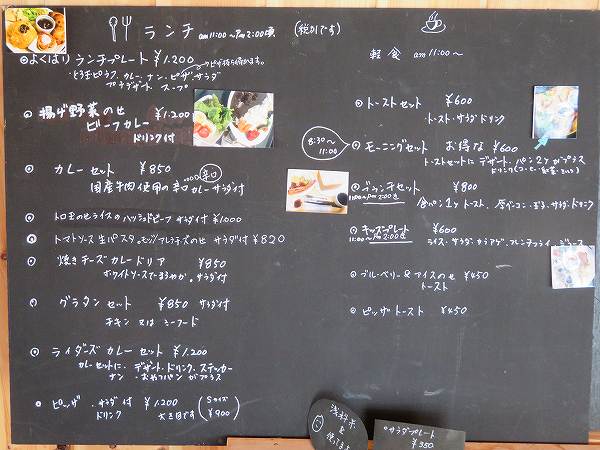 ランチ am11:00~Pm2:00頃
(税別です)
よくばりランチプレート ¥1.200
とろ玉ピラフ、カレー、ナン、ピザ、サラダ
プチデザート、スープ
揚げ野菜のせ ¥1.200
ビーフカレー
ドリンク付
カレーセット ¥850
辛口
国産牛肉使用の辛口カレーサラダ付
トロ玉のせライスのハッシュドビーフ サラダ付 ¥1.000
トマトソース生パスタ モッツァレラチーズのせ サラダ付 ¥820
焼きチーズカレードリア ¥850
ホワイトソースでまろやか。サラダ付
グラタンセット ¥850 サラダ付
チキン 又は シーフード
ライダーズカレーセット ¥1.200
カレーセットに、デザート、ドリンク、ステッカー
ナン・おやつパンがプラス
ピッザ・サラダ付 ¥1.200
ドリンク 大き目です
(Sサイズ ¥900)
軽食 am11:00~
トーストセット ¥600
トースト・サラダ・ドリンク
8:30~
11:00
モーニングセット お得な ¥600
トーストセットに デザート、パン2ヶがプラス
ブランチセット ¥800
11:00~Pm2:00迄
食パン1ヶトースト、厚ベーコン、玉子、サラダ、ドリンク
キッズプレート ¥600
11:00~Pm2:00迄
ライス・サラダ・カラアゲ、フレンチフライ、ジュース
ブルーベリー&アイスのせ ¥450
トースト
ピッザトースト ¥450
浅科米
を
使ってます
サラダプレート
¥350